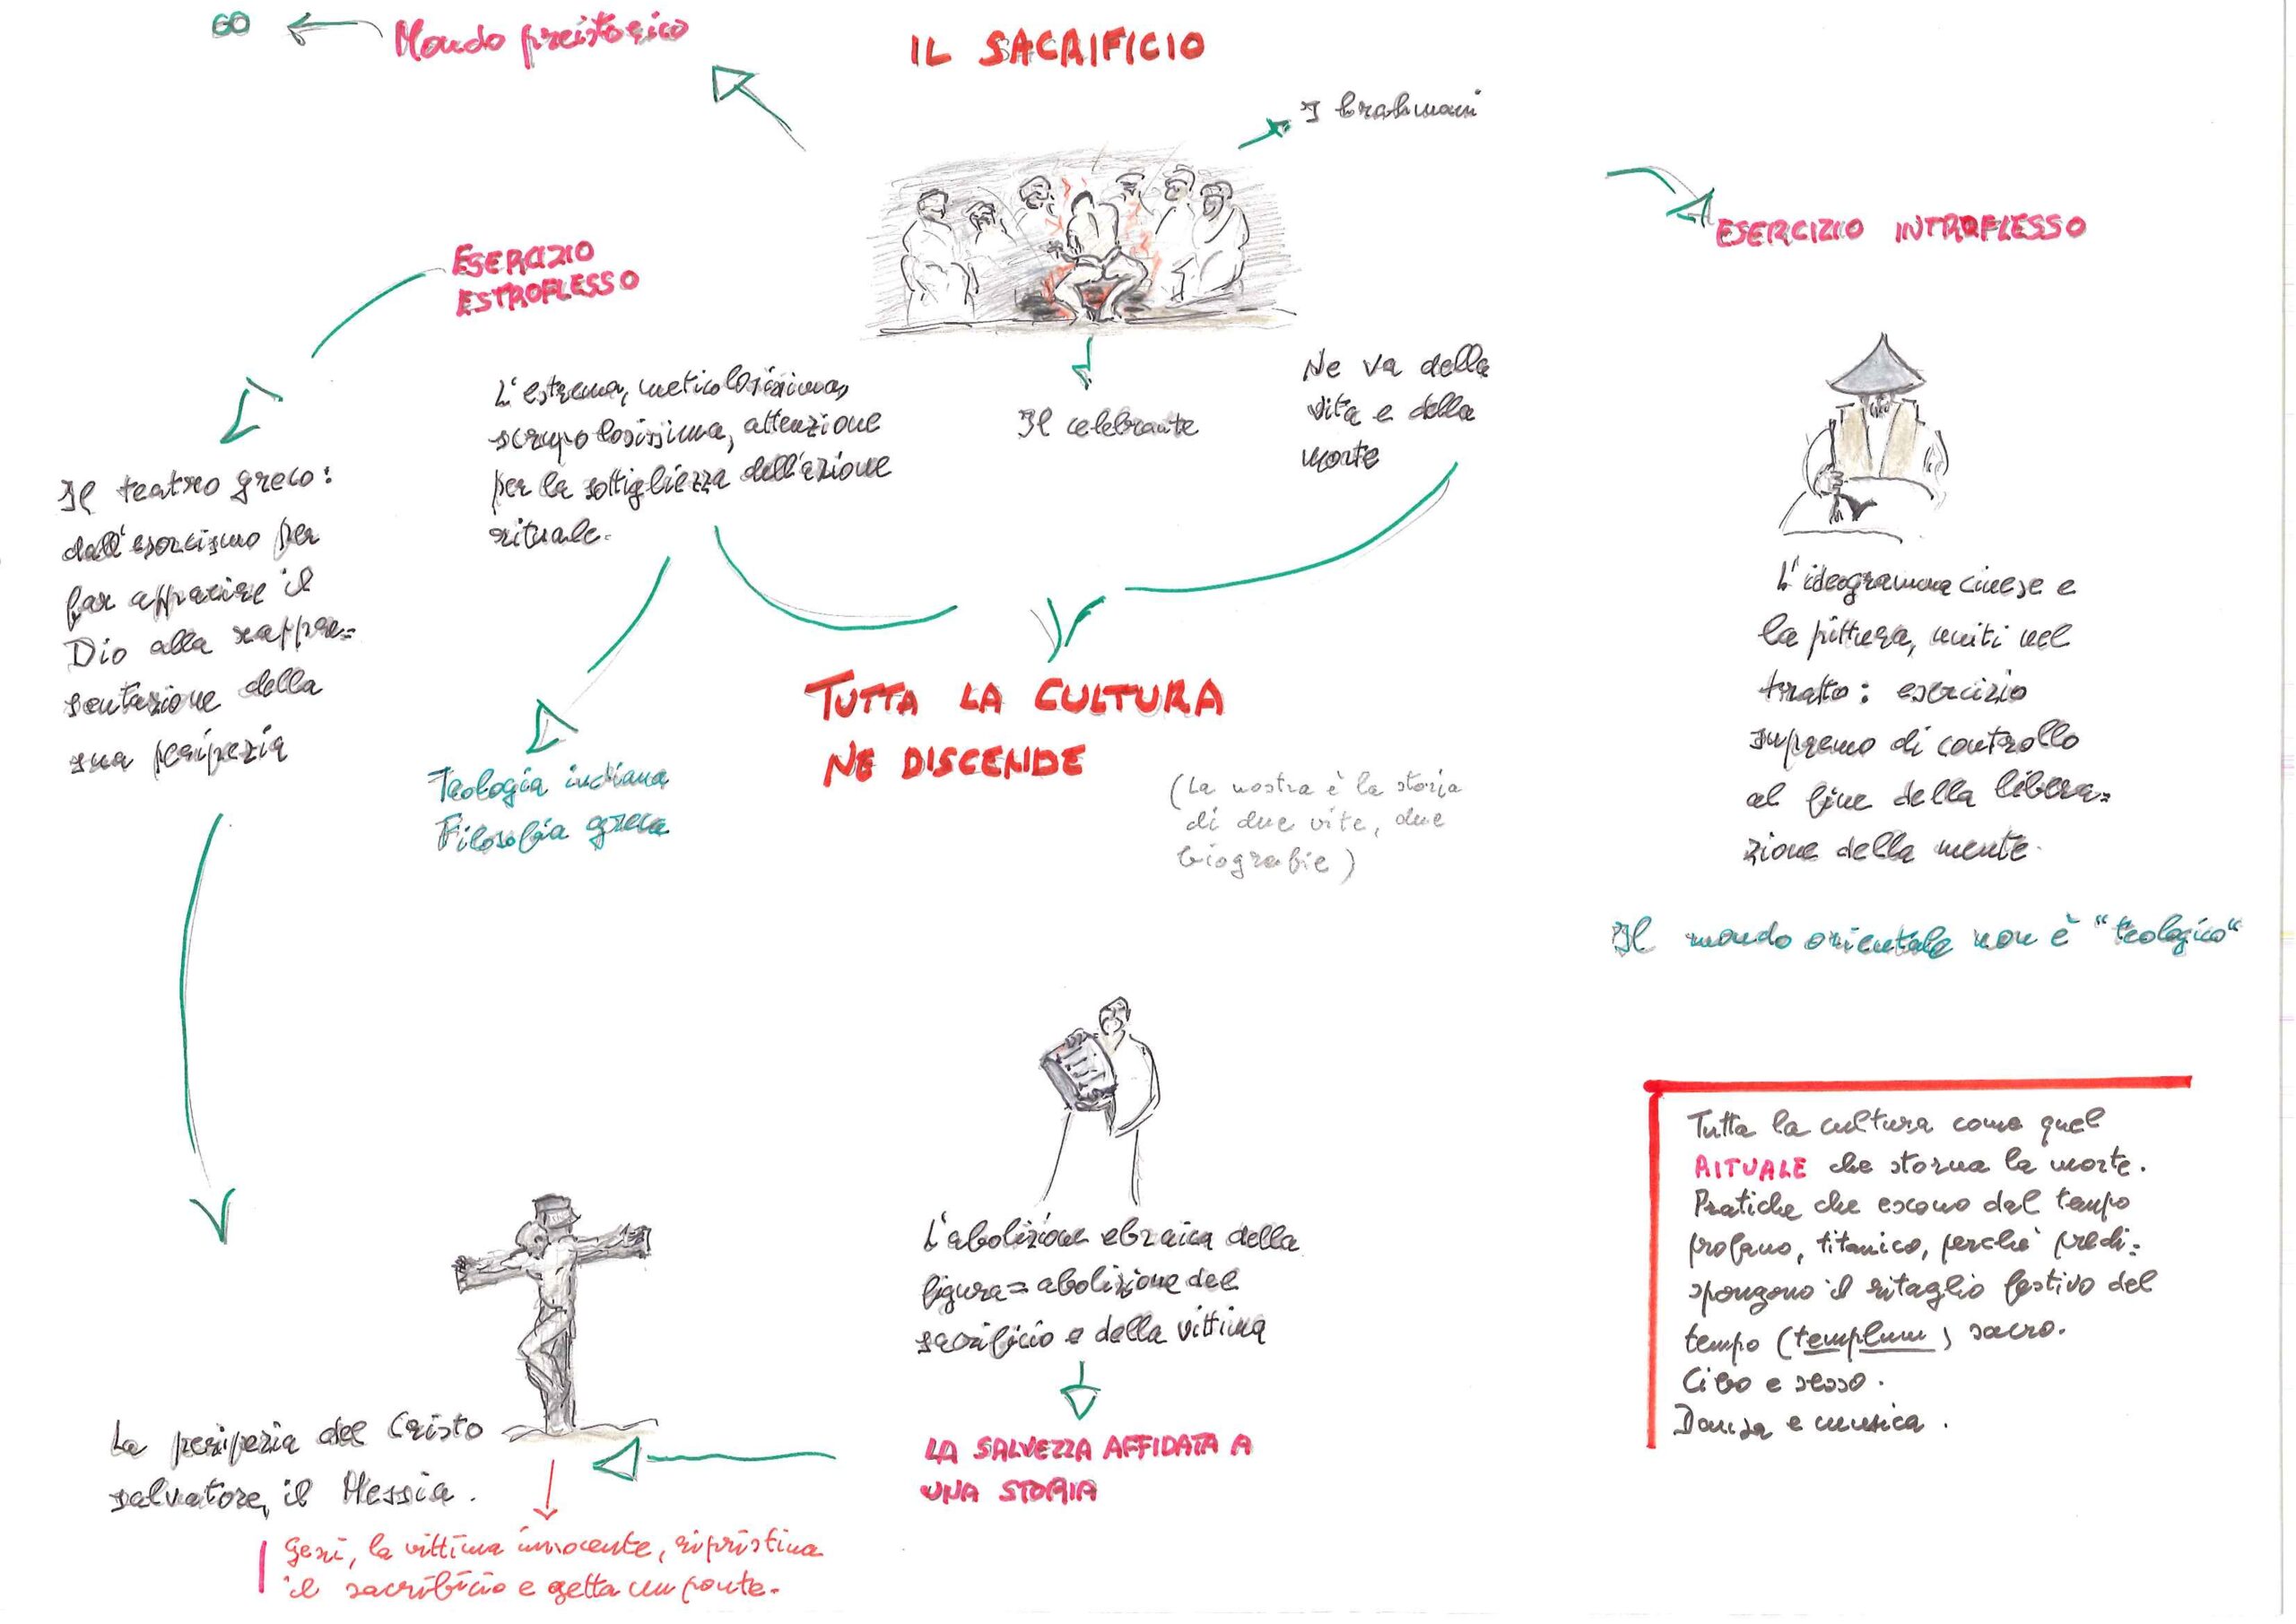 GO
Mondo preistorico
IL SACRIFICIO
I brahmani
ESERCIZIO INTROFLESSO
ESERCIZIO
ESTROFLESSO
L'estrema, meticolosissima,
scrupolosissima, attenzione
per la sottigliezza dell'azione
rituale.
Il celebrante
Ne va della
vita e della
morte
Il teatro greco:
dall'esorcismo per
far apparire il
Dio alla rappre=
sentazione della
sua peripezia
Teologia indiana
Filosofia greca
TUTTA LA CULTURA
NE DISCENDE
(La nostra è la storia
di due vite, due
biografie)
L'ideogramma cinese e
la pittura, uniti nel
tratto: esercizio
supremo di controllo
al fine della libera=
zione della mente.
Il mondo orientale non è "teologico"
L'abolizione ebraica della
figura = abolizione del
sacrificio e della vittima
LA SALVEZZA AFFIDATA A
UNA STORIA
La peripezia del Cristo
salvatore, il Messia.
Gesù, la vittima innocente, ripristina
il sacrificio e getta un ponte.
Tutta la cultura come quel
RITUALE che storna la morte.
Pratiche che escono dal tempo
profano, titanico, perchè predi=
spongono il ritaglio festivo del
tempo (templum) sacro.
Cibo e sesso.
Danza e musica.